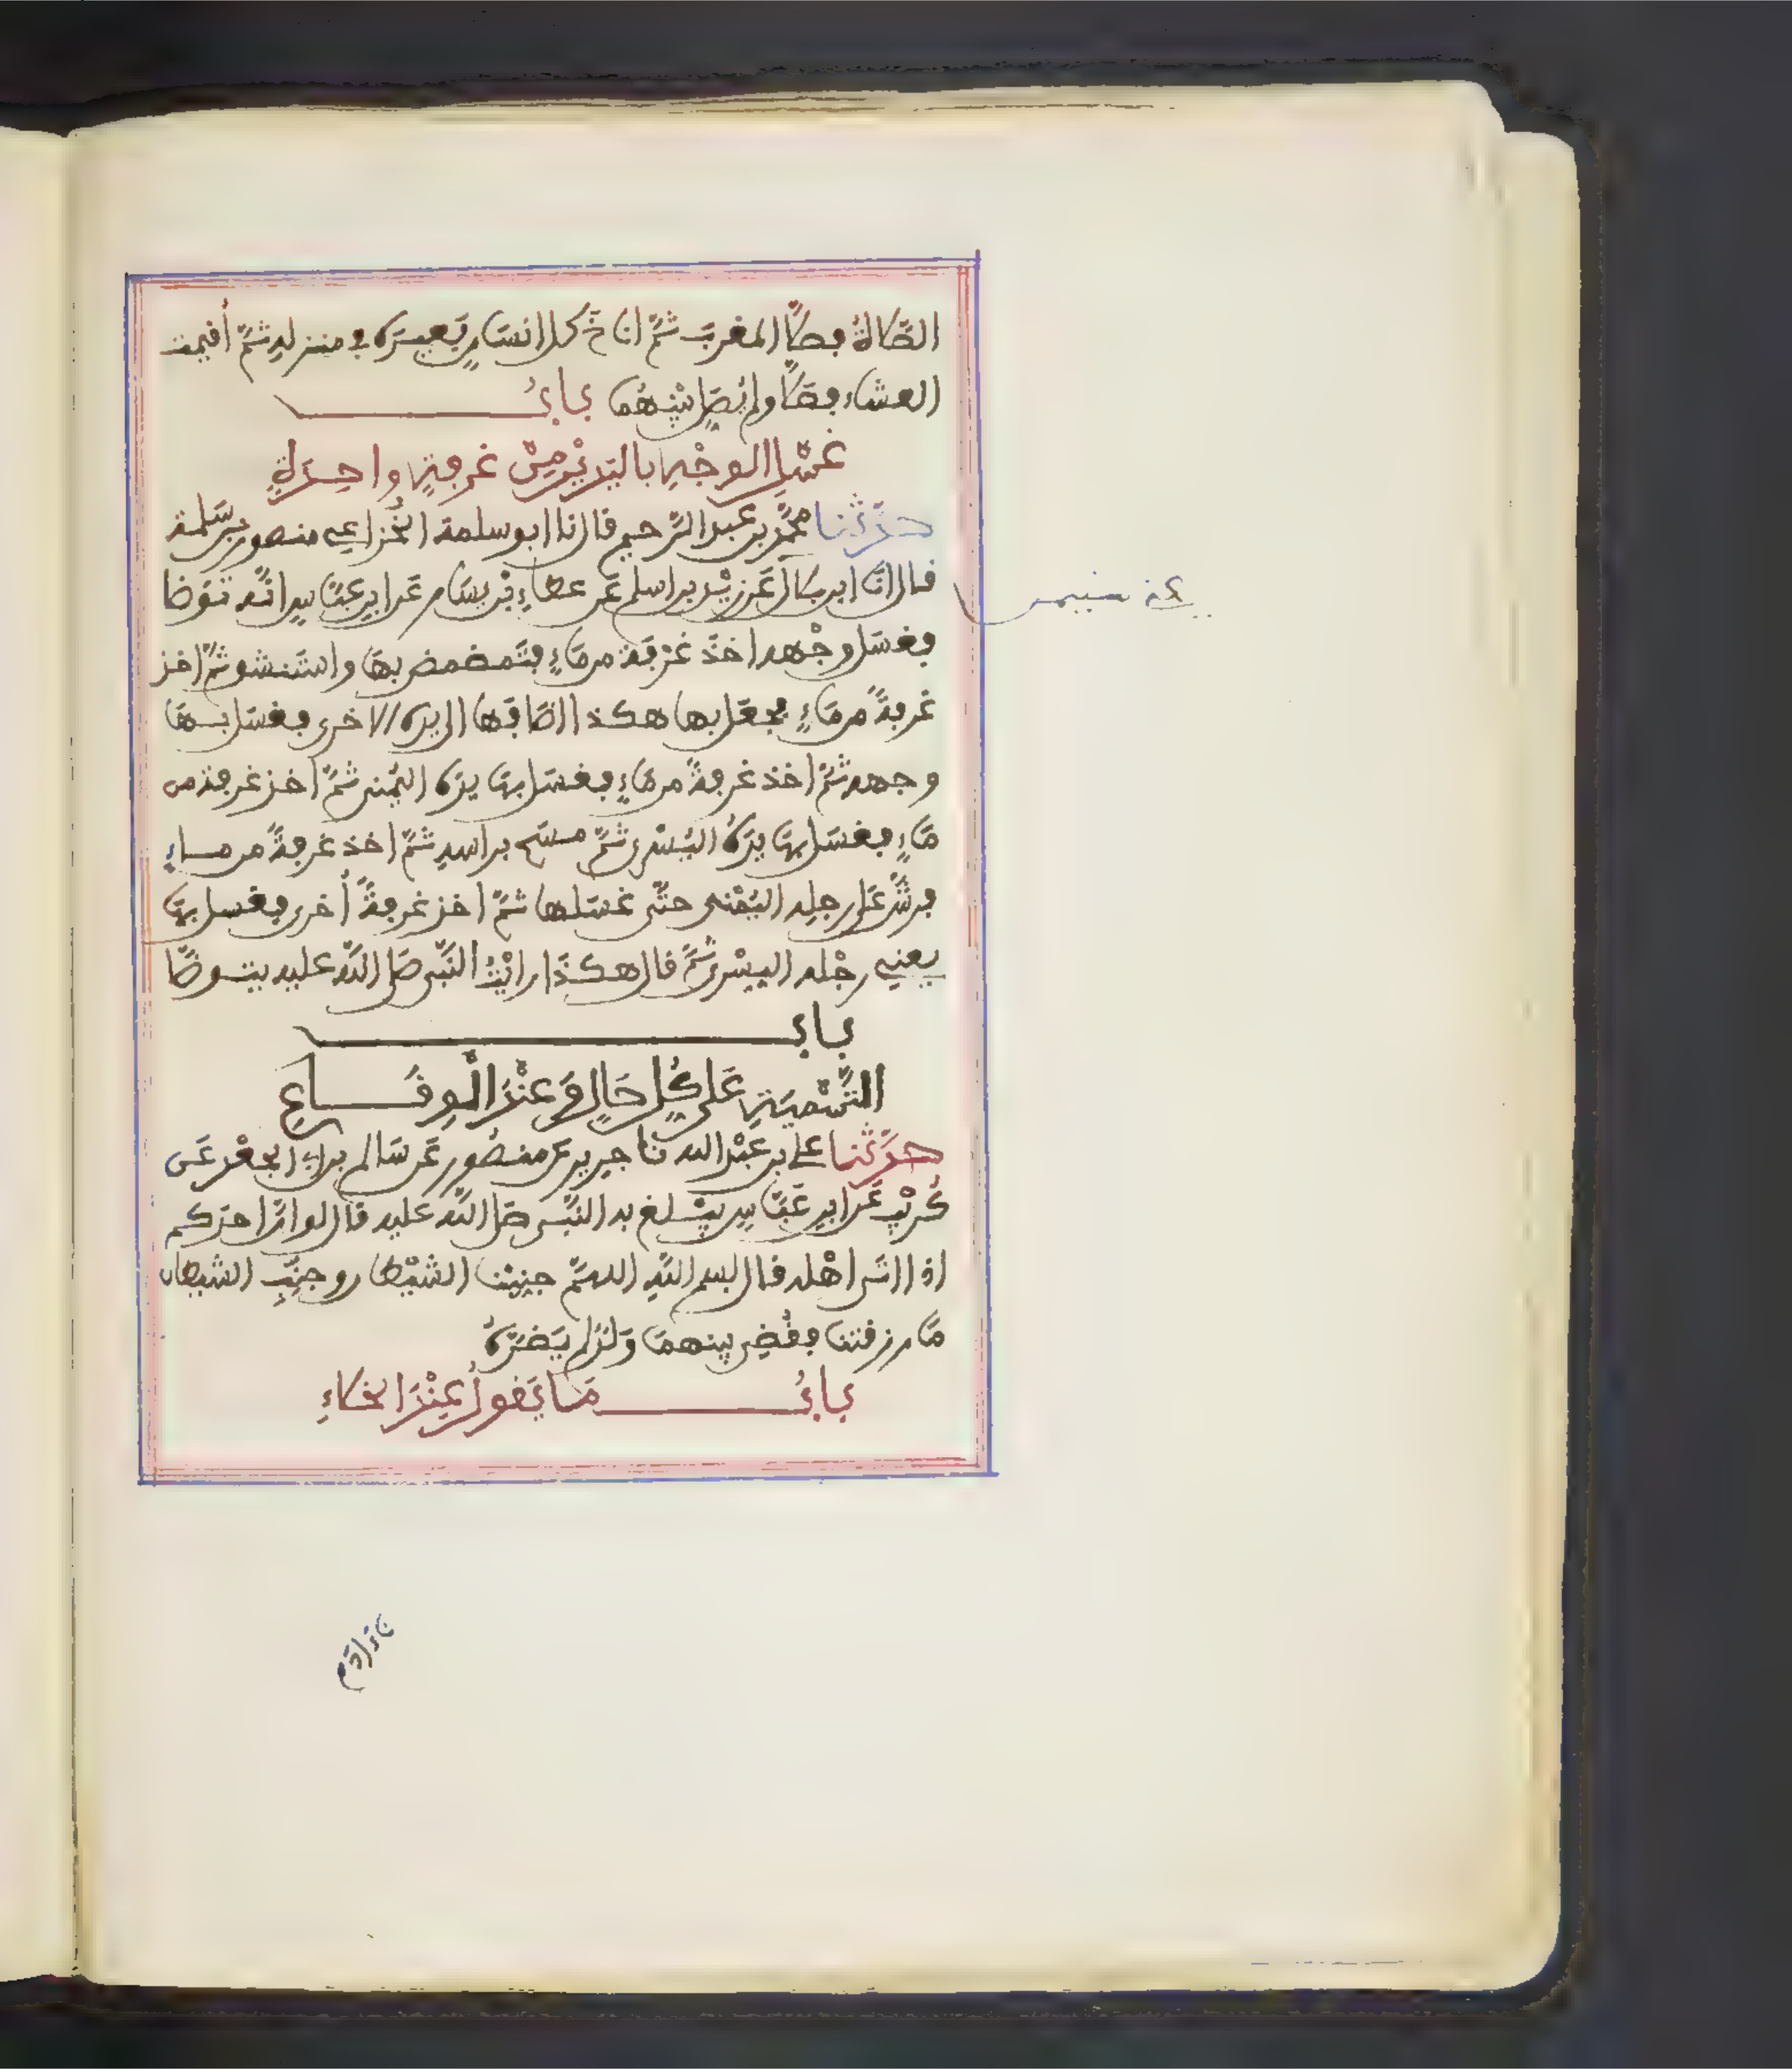 الصَّلاةُ فصلَّى المغربَ ثمَّ اناخ كل انسَانٍ بَعيرَهُ في منزلهِ ثمَّ أقيمت
العشاء فصلَّى ولم يُصَلِّ بَيْنهُمَا بابُ
غَسْلِ الوجْهِ بِاليَدَيْنِ مِنْ غرفةٍ واحِدَةٍ
حدَّثَنا محمَّد بن عبد الرَّحيم قال انا ابو سلمة الخُزاعي منصور بن سَلمة
قال انَا ابن بلال عَن زيْد بن اسلم عَن عطاءِ بْن يسَار عَن ابن عبَّاسٍ انَّه توَضا
فغسَل وجْهه اخذَ غرْفَة من مَاءٍ فتَمضمض بهَا واستَنشق ثمَّ اخذ
غرفةً من مَاءٍ فجعَل بها هكذا اضَافَها الى يده الاخرى فغسَل بها
وجهه ثمَّ اخذ غرفةً من مَاءٍ فغسَل بهَا يدَه اليُمنى ثمَّ اخذ غرفة من
مَاءٍ فغسَل بهَا يدَهُ اليُسْرى ثمَّ مسَح براسهِ ثمَّ اخذ غرفةً من ماءٍ
فرشَّ عَلى رجلِه اليُمْنى حتَّى غسَلها ثمَّ اخذ غرفةً أخرى فغسل بهَا
يعني رجْله اليسْرى ثمَّ قال هكذَا رايْتُ النَّبي صَلى اللَّه عليه يتوضَّا
باب
التَّسْمِيَةِ عَلى كُلِّ حَالٍ وَعِنْدَ الْوِقَاعِ
حدَّثنا علي بن عَبْد الله نا جرير عن منصُور عَن سَالم بن ابي الجعْد عَن
كُرَيْب عَن ابن عَبَّاسٍ يَبْلغ به النَّبي صَلى اللَّه عليه قال لو انَّ احدَكم
اذا اتَى اهْله قال بسم اللَّهِ اللهمَّ جنِبْنا الشيْطان وجنِّبِ الشيطان
مَا رزقتنا فقُضِي بينهمَا وَلَدٌ لم يَضرَّهُ
بابُ مَا يَقولُ عِنْدَ الخَلاءِ